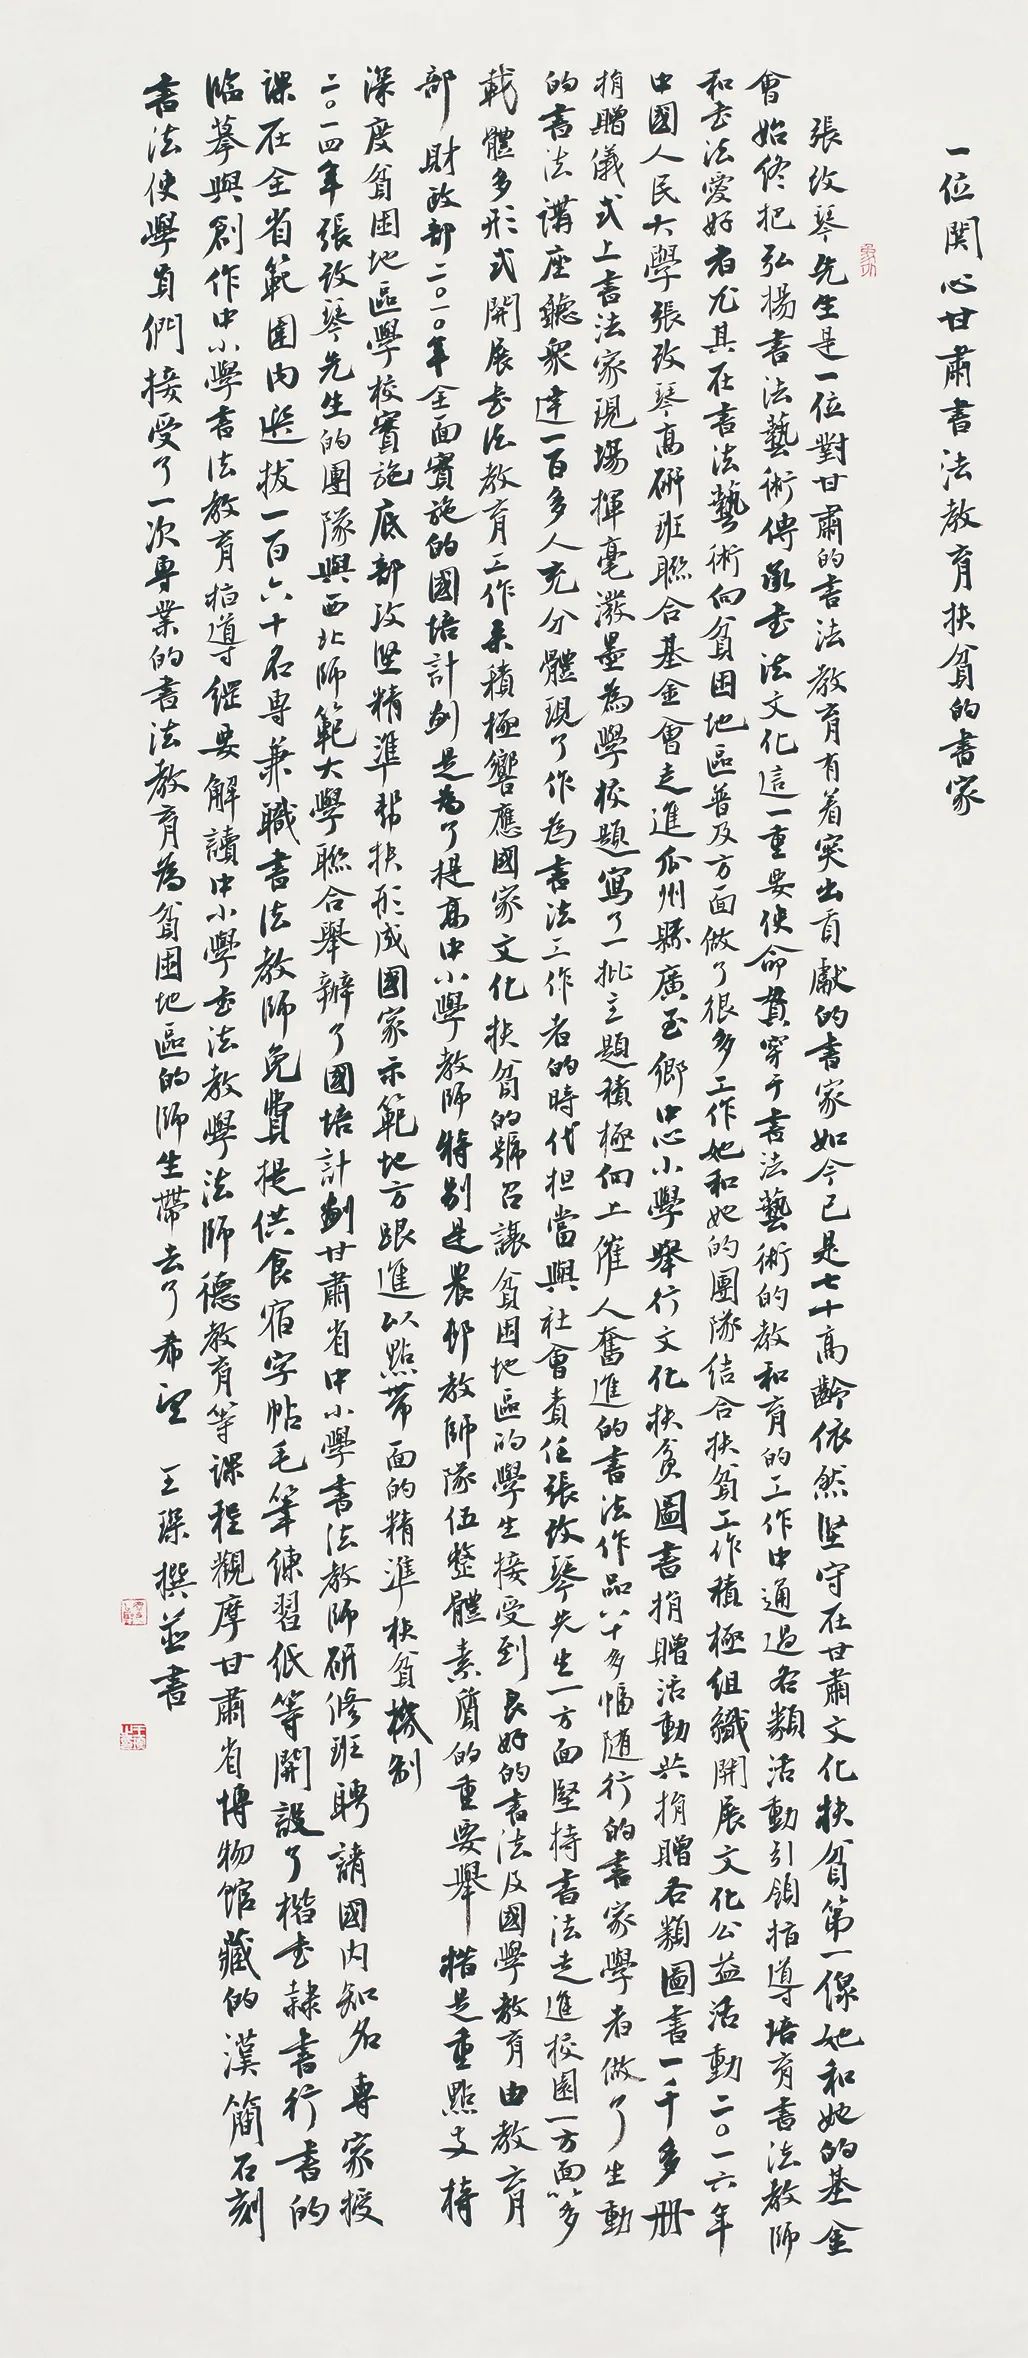 一位関心甘肅書法教育扶貧的書家
張改琴先生是一位對甘肅的書法教育有着突出貢獻的書家如今已是七十高齡依然堅守在甘肅文化扶貧第一線她和她的基金
會始終把弘揚書法藝術傳承書法文化這一重要使命貫穿于書法藝術的教和育的工作中通過各類活動引領指導培育書法教師
和書法愛好者尤其在書法藝術向貧困地區普及方面做了很多工作她和她的團隊結合扶貧工作積極組織開展文化公益活動二〇一六年
中國人民大學張改琴高研班聯合基金會走進瓜州縣廣至鄉中心小學舉行文化扶貧圖書捐贈活動共捐贈各類圖書一千多册
捐贈儀式上書法家現場揮毫潑墨為學校題寫了一批主題積極向上催人奮進的書法作品八十多幅随行的書家學者做了生動
的書法講座聽衆達一百多人充分體現了作為書法工作者的時代担當與社會責任張改琴先生一方面堅持書法走進校園一方面以多
載體多形式開展書法教育工作來積極響應國家文化扶貧的號召讓貧困地區的學生接受到良好的書法及國學教育由教育
部財政部二〇一〇年全面實施的國培計劃是為了提高中小學教師特别是農邨教師隊伍整體素質的重要舉措是重點支持
深度貧困地區學校實施底部攻堅精準幫扶形成國家示範地方跟進以點帶面的精準扶貧機制
二〇一四年張改琴先生的團隊與西北師範大學聯合舉辦了國培計劃甘肅省中小學書法教師研修班聘請國内知名專家授
課在全省範圍内選拔一百六十名專兼職書法教師免費提供食宿字帖毛筆練習紙等開設了楷書隸書行書的
臨摹與創作中小學書法教育指導綱要解讀中小學書法教學法師德教育等課程觀摩甘肅省博物館藏的漢簡石刻
書法使學員們接受了一次專業的書法教育為貧困地區的師生帶去了希望 王琛撰並書